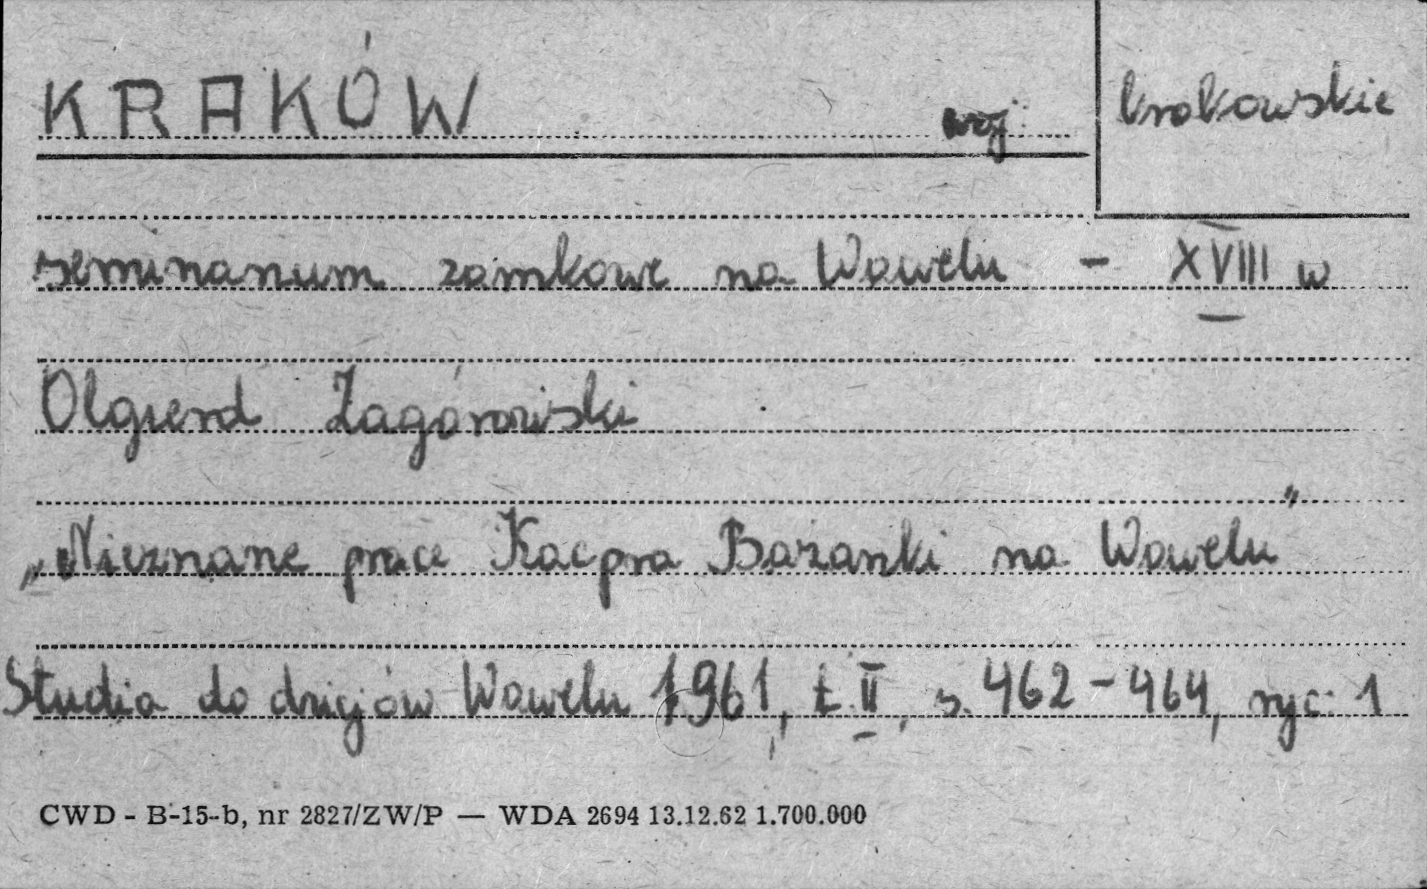 KRAKÓW woj. krakowskie
seminarium zamkowe na Wawelu - XVIII w
Olgierd Zagórowski
„Nieznane prace Kacpra Bażanki na Wawelu"
Studia do dziejów Wawelu 1961, t. II, s. 462-464, ryc. 1
CWD - B-15-b, nr 2827/ZW/P — WDA 2694 13.12.62 1.700.000